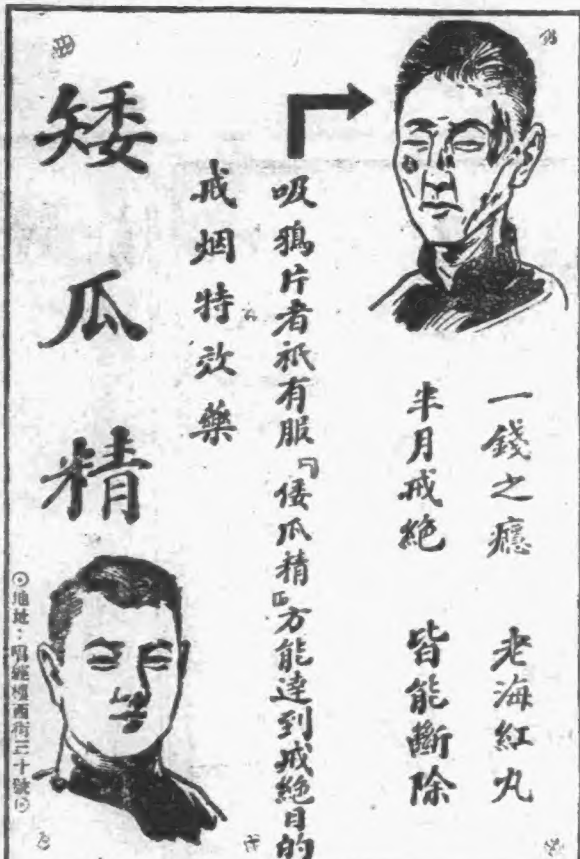 一錢之癮　老海紅丸
半月戒絶　皆能斷除
吸鴉片者祇有服『倭瓜精』方能達到戒絶目的
戒烟特效藥
矮瓜精
◎地址：唱經樓西街三十號◎